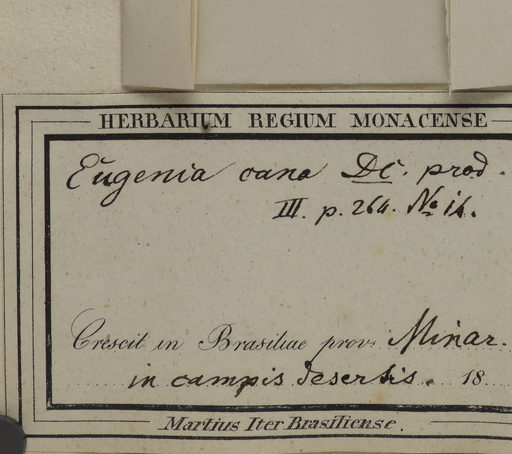 HERBARIUM REGIUM MONACENSE
Eugenia cana DC. prod.
III. p. 264. No 16.
Crescit in Brasiliae prov. Minar.
in campis desertis. 18
Martius Iter Brasiliense.